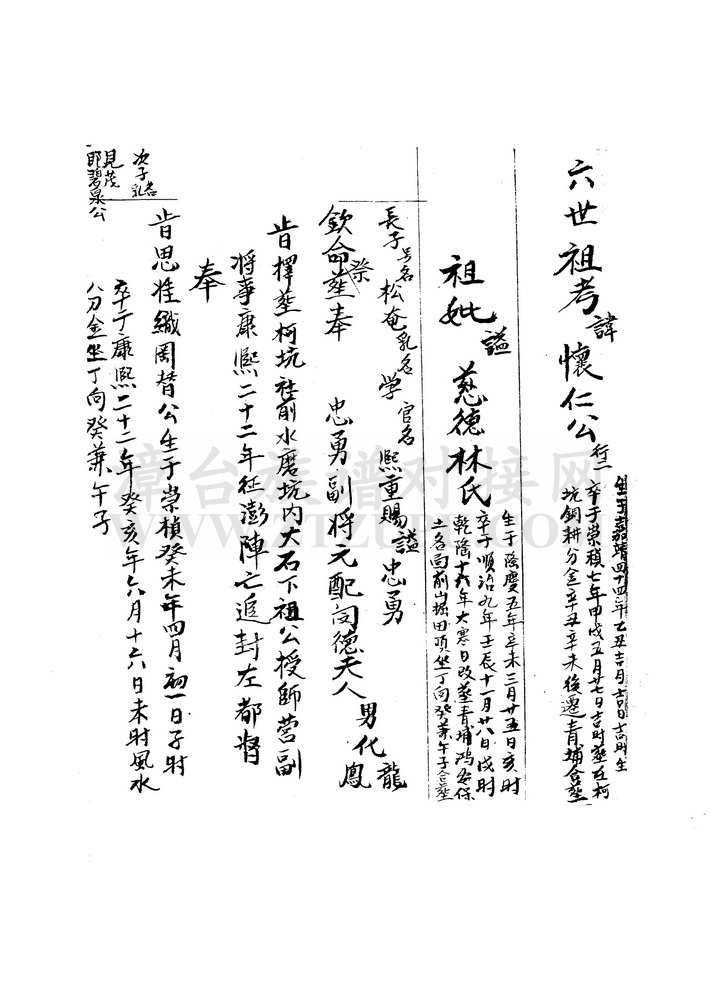 六世祖考諱懷仁公行一
生于嘉靖四十四年乙丑吉月吉日吉時生
卒于崇禎七年甲戌五月廿七日吉時塟在柯
坑銅耕分金辛丑辛未後遷青埔合塟
祖妣諡慈德林氏
生于隆慶五年辛未三月廿五日亥時
卒于順治九年壬辰十一月廿八日戌時
乾隆十六年大寒日改塟青埔鴻安保
土名面前山堀田頂坐丁向癸兼午子合塟
長子号名松奄乳名学官名熙重賜諡忠勇
欽命祭塟奉 忠勇副將元配閔德夫人男化龍
鳳
旨擇塟柯坑社前水磨坑内大石下祖公授師营副
將事康熙二十二年征澎陣亡追封左都督
奉
旨思准織罔替公生于崇禎癸未年四月初一日子时
卒于康熙二十二年癸亥年六月十六日未时風水
八分金坐丁向癸兼午子
次子乳名
見茂
即碧泉公
章台族谱对接网
WWW.ZTZUPU.COM